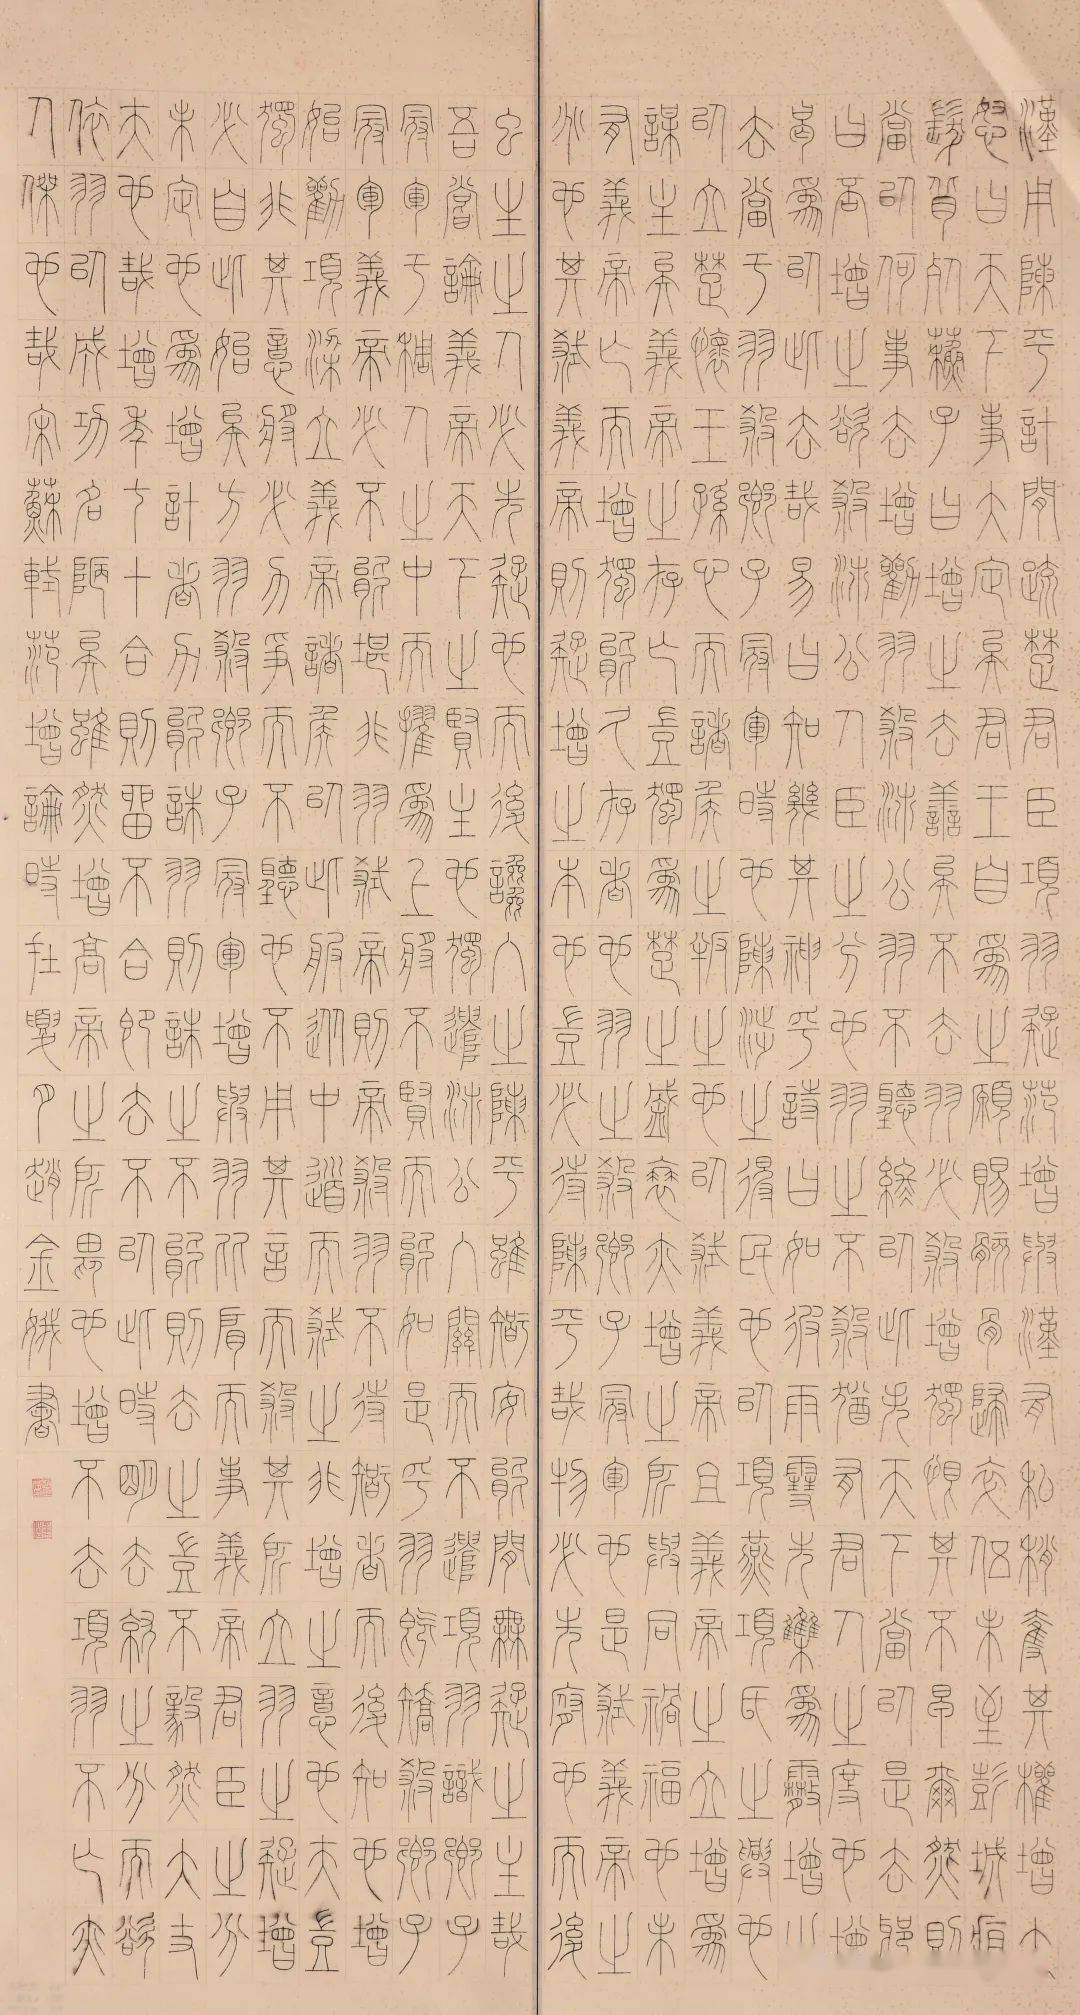 漢用陳平計間疏楚君臣項羽疑范增與漢有私稍奪其權增大
怒曰天下事大定矣君王自爲之願賜骸骨歸卒伍未至彭城疽
發背死蘇子曰增之去善矣不去羽必殺增獨恨其不早爾然則
當以何事去增勸羽殺沛公羽不聽終以此失天下當以是去耶
曰否增之欲殺沛公人臣之分也羽之不殺猶有君人之度也增
曷爲以此去哉易曰知幾其神乎詩曰如彼雨雪先集爲霰增之
去當于羽殺卿子冠軍時也陳涉之得民也以項燕項氏之興也
以立楚懷王孫心而諸侯之叛之也以弒義帝且義帝之立增爲
謀主矣義帝之存亡豈獨爲楚之盛衰亦增之所與同禍福也未
有義帝亡而增獨能久存者也羽之殺卿子冠軍也是弒義帝之
兆也其弒義帝則疑增之本也豈必待陳平哉物必先腐也而後
蟲生之人必先疑也而後讒入之陳平雖智安能間無疑之主哉
吾嘗論義帝天下之賢主也獨遣沛公入關而不遣項羽識卿子
冠軍于稠人之中而擢爲上將不賢而能如是乎羽既矯殺卿子
冠軍義帝必不能堪非羽弒帝則帝殺羽不待智者而後知也增
始勸項梁立義帝諸侯以此服從中道而弒之非增之意也夫豈
獨非其意將必力爭而不聽也不用其言而殺其所立羽之疑增
必自此始矣方羽殺卿子冠軍增與羽比肩而事義帝君臣之分
未定也爲增計者力能誅羽則誅之不能則去之豈不毅然大丈
夫也哉增年七十合則留不合即去不以此時明去就之分而欲
依羽以成功名陋矣雖然增高帝之所畏也增不去項羽不亡亦
人傑也哉宋蘇軾范增論時在夏月趙金娥書